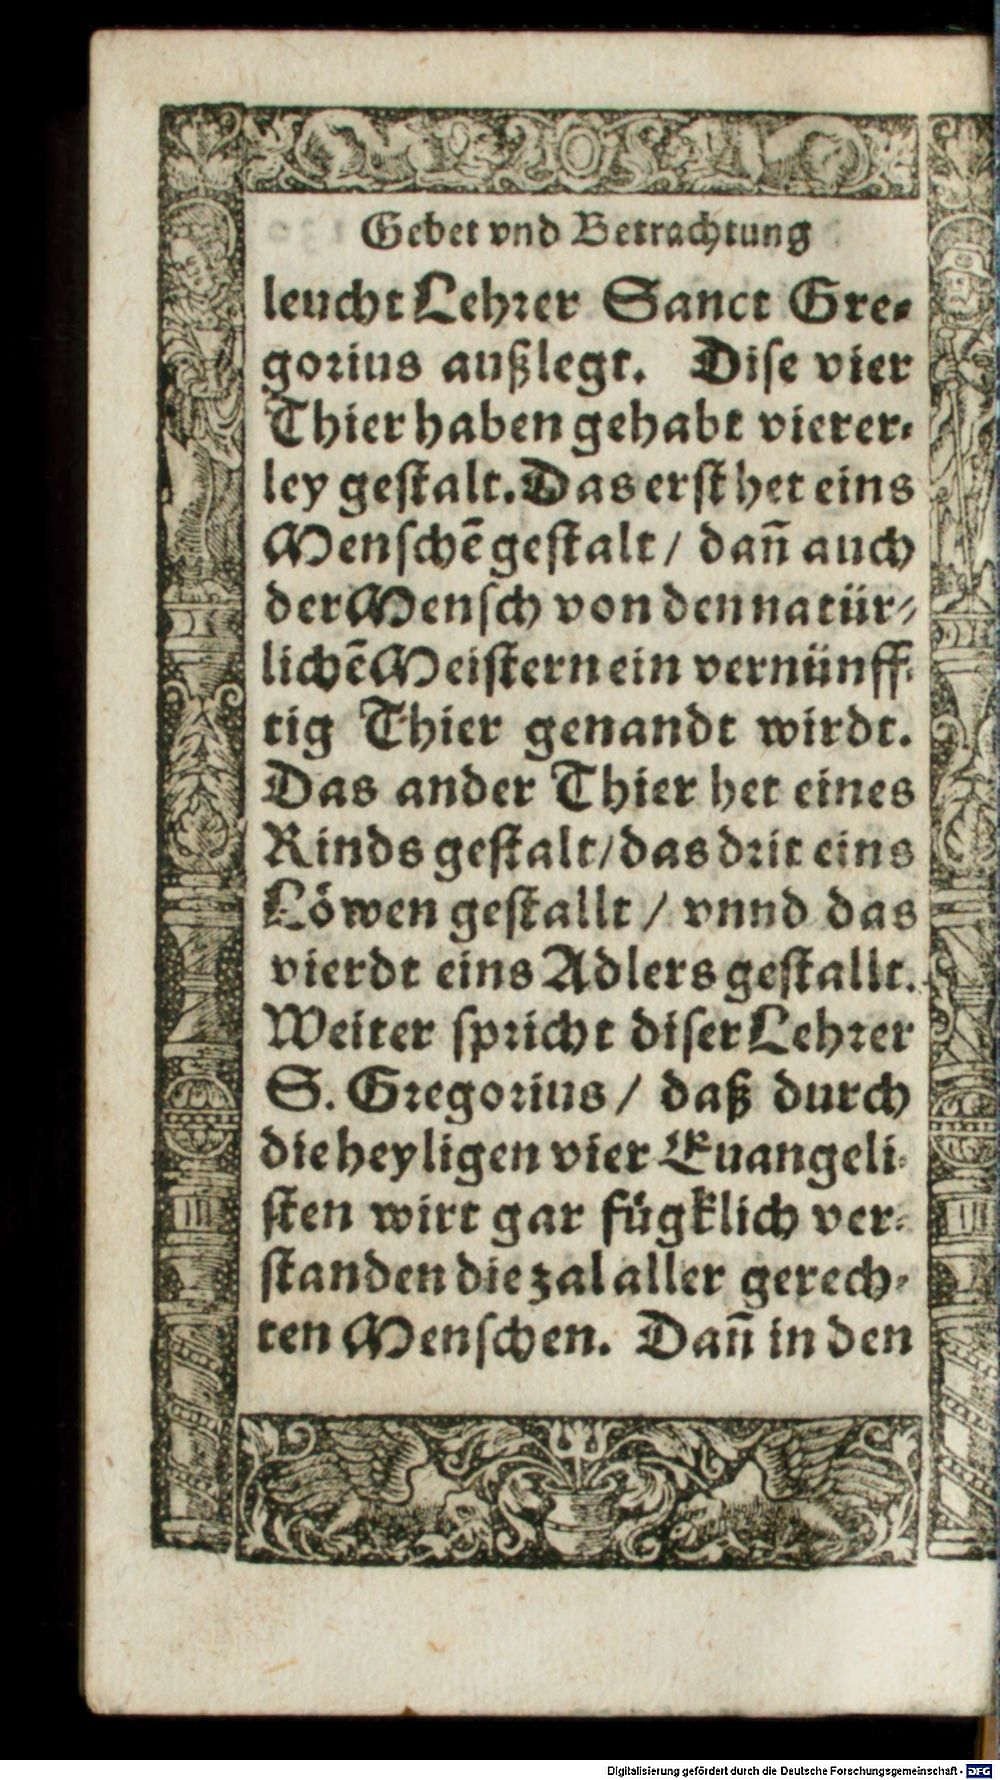 Gebet vnd Betrachtung
leucht Lehrer Sanct Gre-
gorius außlegt. Dise vier
Thier haben gehabt vierer-
ley gestalt. Das erst het eins
Menschẽ gestalt / dañ auch
der Mensch von den natür-
lichẽ Meistern ein vernünff-
tig Thier genandt wirdt.
Das ander Thier het eines
Rinds gestalt / das drit eins
Löwen gestallt / vnnd das
vierdt eins Adlers gestallt.
Weiter spricht diser Lehrer
S. Gregorius / daß durch
die heyligen vier Euangeli-
sten wirt gar fügklich ver-
standen die zal aller gerech-
ten Menschen. Dañ in den
Digitalisierung gefördert durch die Deutsche Forschungsgemeinschaft - DFG